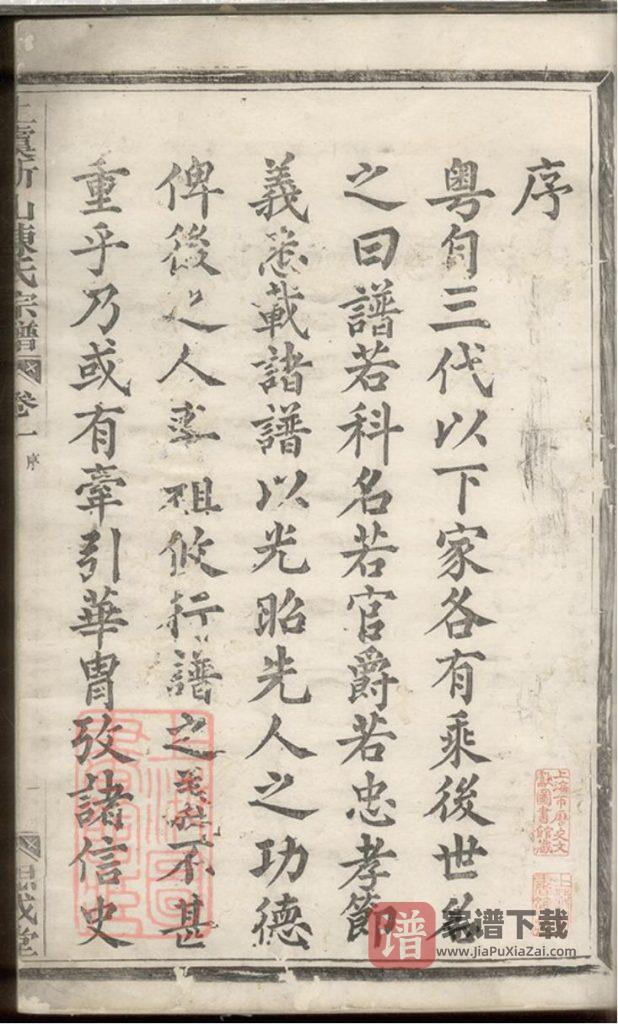 序
粵自三代以下家各有乘後世名
之曰譜若科名若官爵若忠孝節
義悉載諸譜以光昭先人之功德
俾後之人聿祖攸行譜之義詎不甚
重乎乃或有牽引華胄攷諸信史
上虞新山陳氏宗譜 卷一 序 一 思成堂
上海市歷史文獻圖書館藏
家谱下载
www.JiaPuXiaZai.com
谱